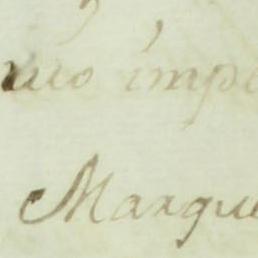 uo impe
Marque